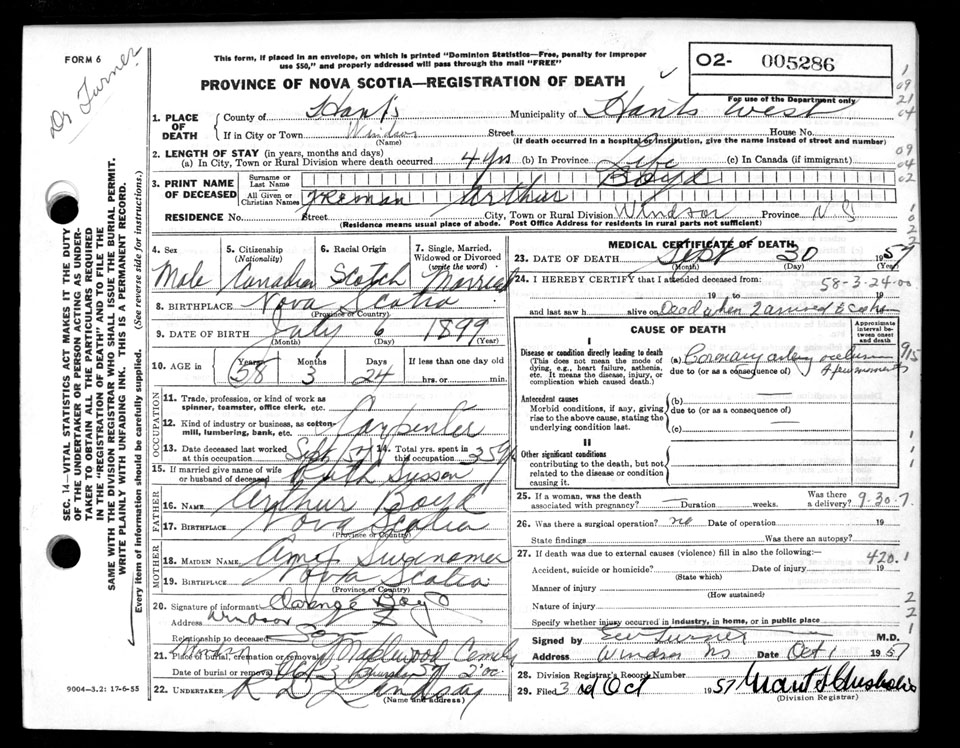 FORM 6
Dr Turner
This form, if placed in an envelope, on which is printed "Dominion Statistics—Free, penalty for improper
use $50," and properly addressed will pass through the mail "FREE"
PROVINCE OF NOVA SCOTIA—REGISTRATION OF DEATH
O2- 005286
For use of the Department only
1. PLACE OF DEATH County of Hants Municipality of Hants West
If in City or Town Windsor (Name) Street House No.
(If death occurred in a hospital or institution, give the name instead of street and number)
2. LENGTH OF STAY (in years, months and days)
(a) In City, Town or Rural Division where death occurred 4 yrs (b) In Province Life (c) In Canada (if immigrant)
3. PRINT NAME OF DECEASED Surname or Last Name Boyd
All Given or Christian Names Freman Arthur
RESIDENCE No. Street City, Town or Rural Division Windsor Province N.S.
(Residence means usual place of abode. Post Office Address for residents in rural parts not sufficient)
4. Sex 5. Citizenship (Nationality) 6. Racial Origin 7. Single, Married, Widowed or Divorced (write the word)
Male Canadian Scotch Married
8. BIRTHPLACE Nova Scotia
(Province or Country)
9. DATE OF BIRTH July 6 1899
(Month) (Day) (Year)
10. AGE in Years Months Days If less than one day old
58 3 24 hrs. or min.
OCCUPATION
11. Trade, profession, or kind of work as
spinner, teamster, office clerk, etc.
12. Kind of industry or business, as cotton-
mill, lumbering, bank, etc. Carpenter
13. Date deceased last worked at this occupation Sept 57 14. Total yrs. spent in this occupation 35 yrs
15. If married give name of wife
or husband of deceased Ruth
FATHER
16. NAME Arthur Boyd
17. BIRTHPLACE Nova Scotia
(Province or Country)
MOTHER
18. MAIDEN NAME Amy
19. BIRTHPLACE Nova Scotia
(Province or Country)
20. Signature of informant Clarence Boyd
Address Windsor
Relationship to deceased Son
21. Place of burial, cremation or removal Windsor Maplewood Cemetery
Date of burial or removal 57 2:00
22. UNDERTAKER R D Lindsay
(Name and address)
9004-3.2: 17-6-55
MEDICAL CERTIFICATE OF DEATH
23. DATE OF DEATH Sept 30 1957
(Month) (Day) (Year)
24. I HEREBY CERTIFY that I attended deceased from:
58-3-24-00
19 to 19
and last saw h alive on Dead when I arrived
CAUSE OF DEATH
Approximate interval between onset and death
I
Disease or condition directly leading to death
(This does not mean the mode of dying, e.g., heart failure, asthenia, etc. It means the disease, injury, or complication which caused death.)
(a) Coronary artery occlusion
due to (or as a consequence of)
a few moments
Antecedent causes
Morbid conditions, if any, giving rise to the above cause, stating the underlying condition last.
(b)
due to (or as a consequence of)
(c)
II
Other significant conditions
contributing to the death, but not related to the disease or condition causing it.
25. If a woman, was the death associated with pregnancy? Duration weeks. Was there a delivery?
9-30-7
26. Was there a surgical operation? no Date of operation 19
State findings Was there an autopsy?
27. If death was due to external causes (violence) fill in also the following:
420.1
Accident, suicide or homicide? Date of 19
(State which)
Manner of injury
(How sustained)
Nature of injury
Specify whether injury occurred in industry, in home, or in public place
Signed by Turner M.D.
Address Windsor NS Date Oct 1 1957
28. Division Registrar's Record Number
29. Filed 3rd Oct 1957
(Division Registrar)
SEC. 14—VITAL STATISTICS ACT MAKES IT THE DUTY
OF THE UNDERTAKER OR PERSON ACTING AS UNDER-
TAKER TO OBTAIN ALL THE PARTICULARS REQUIRED
IN THE "REGISTRATION OF DEATH" AND TO FILE THE
SAME WITH THE DIVISION REGISTRAR WHO SHALL ISSUE THE BURIAL PERMIT.
WRITE PLAINLY WITH UNFADING INK. THIS IS A PERMANENT RECORD.
Every item of information should be carefully supplied. (See reverse side for instructions.)